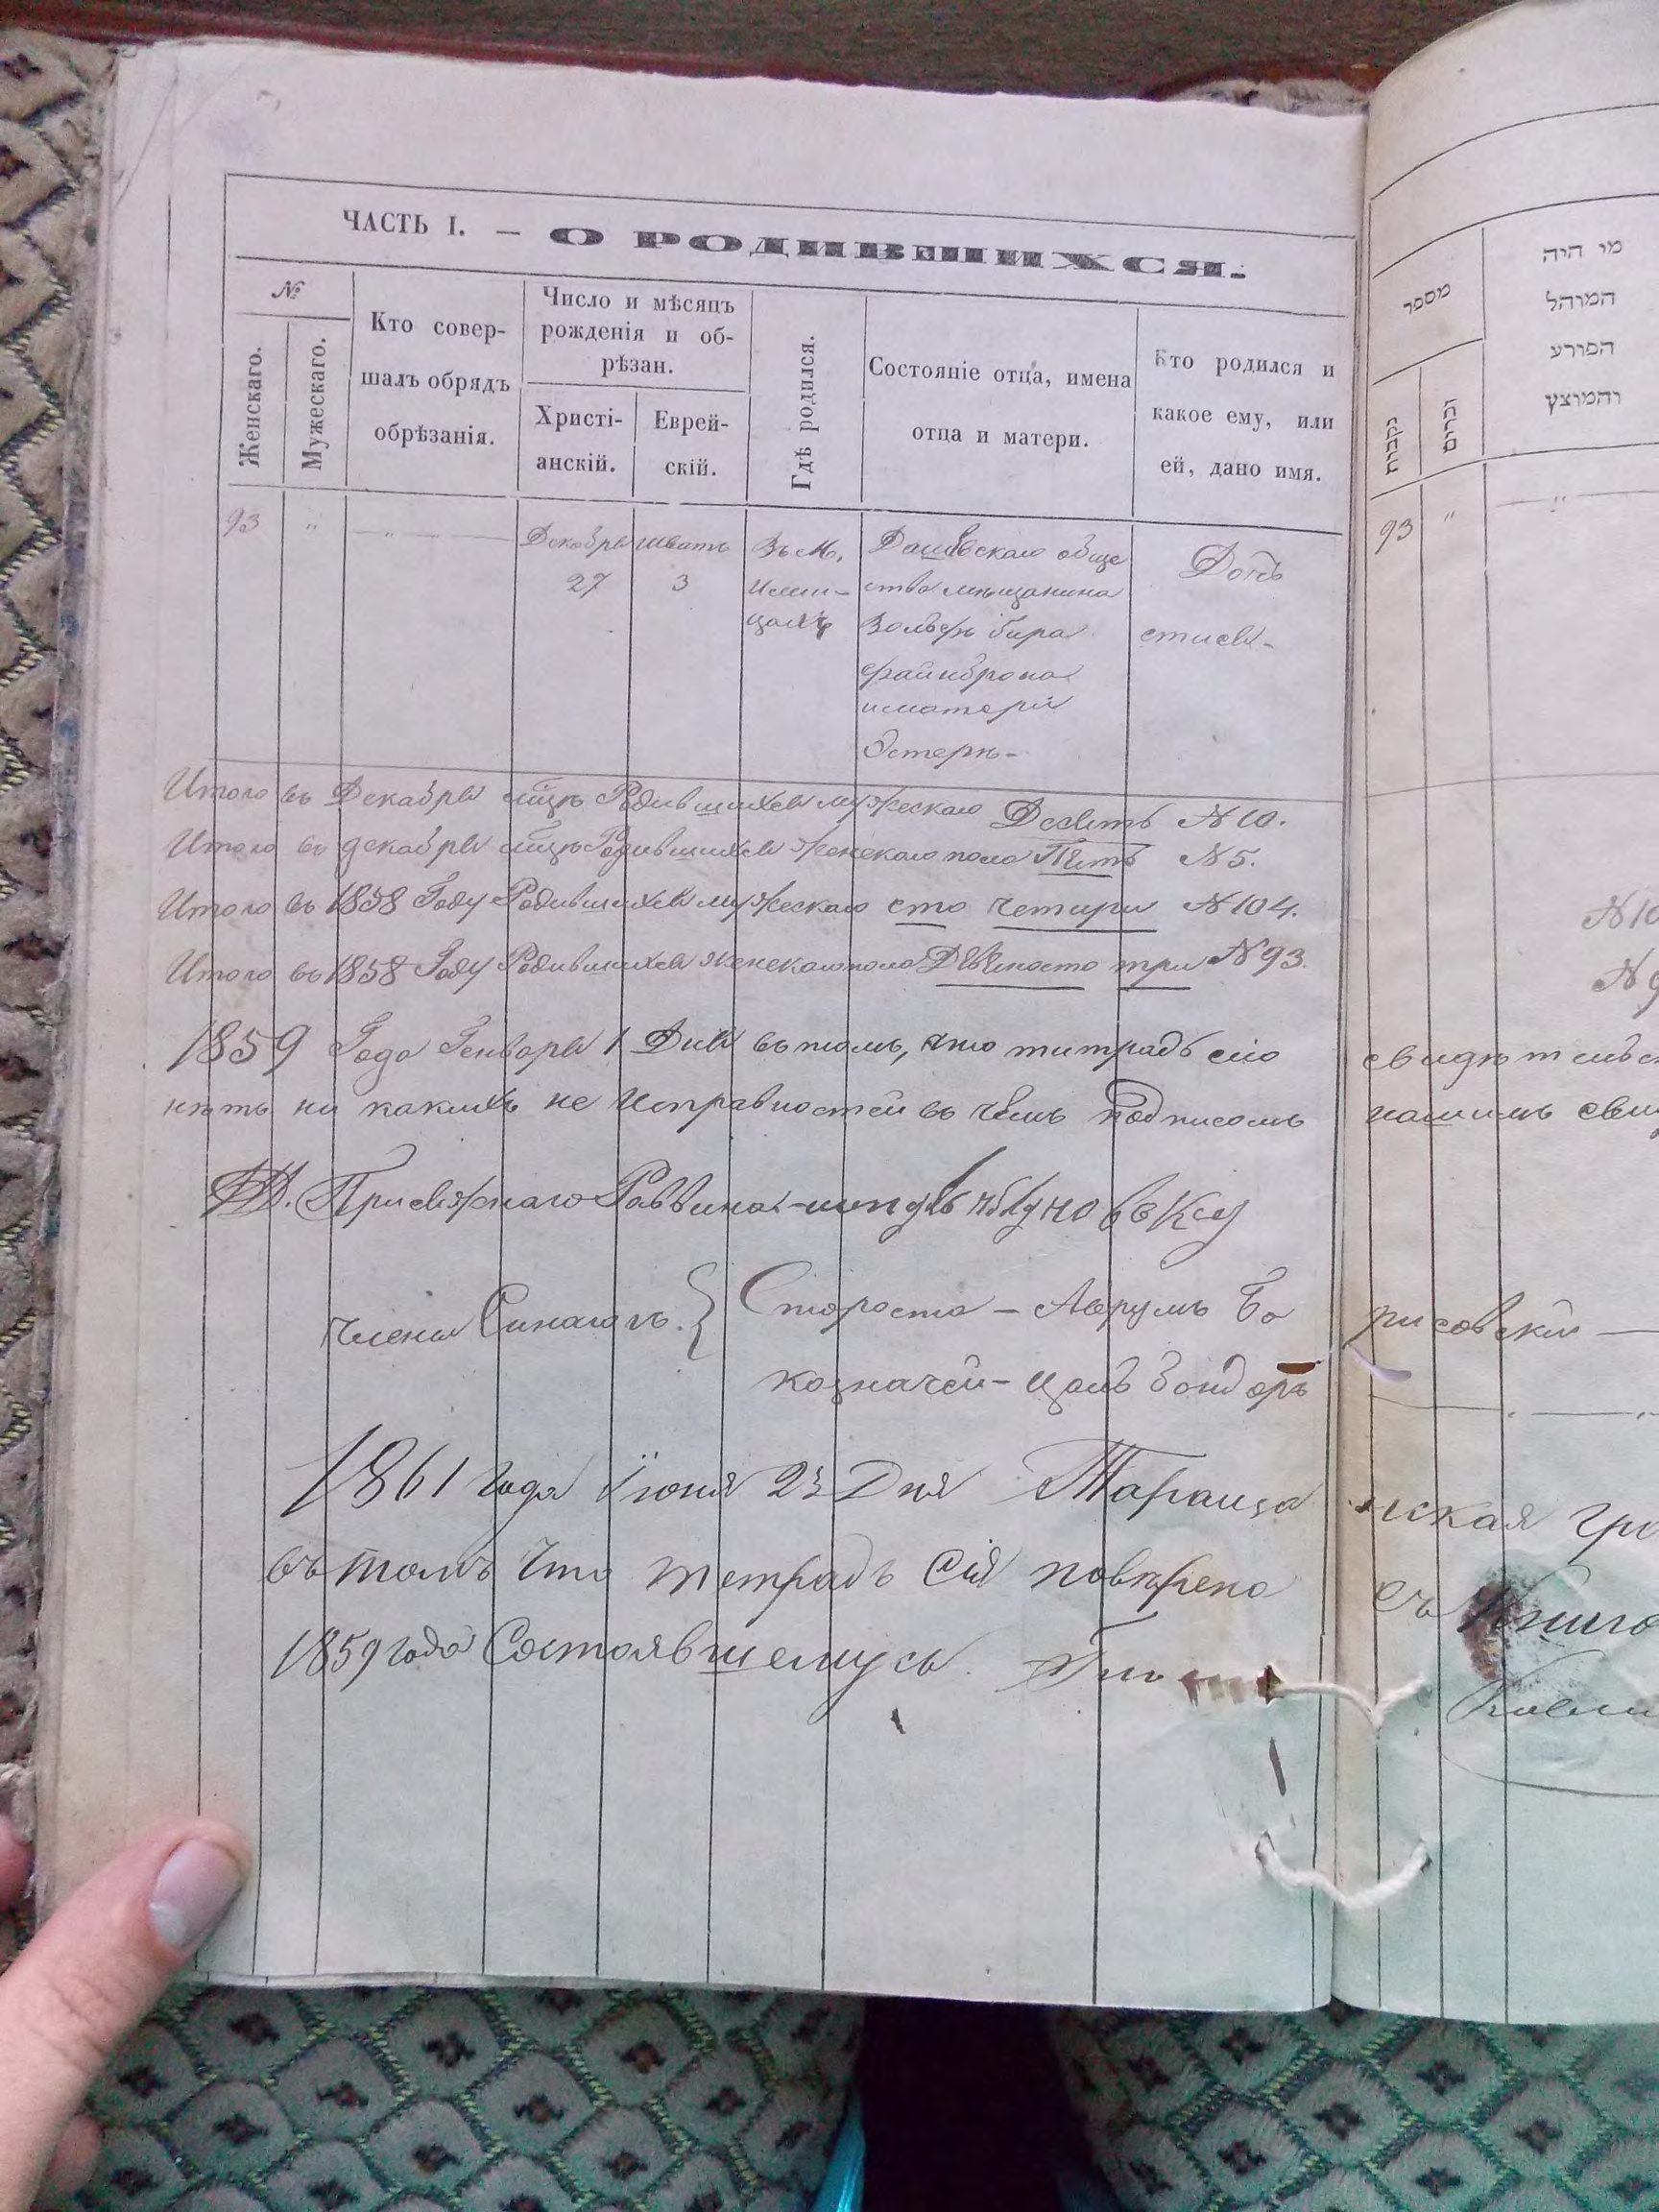 ЧАСТЬ I. — О РОДИВШИХСЯ.
№
Женскаго.
Мужескаго.
Кто совер-
шалъ обрядъ
обрѣзанія.
Число и мѣсяцъ
рожденія и об-
рѣзан.
Христі-
анскій.
Еврей-
скій.
Гдѣ родился.
Состояніе отца, имена
отца и матери.
Кто родился и
какое ему, или
ей, дано имя.
93 " — " —
Декабря
27
шватъ
3
Въ м.
цахъ
Дашевскаго обще
ства мѣщанина
Вольфъ бира
файнброна
иматери
Эстеръ-
Дочь
Итого въ Декабрѣ мцѣ Родившихся мужескаго Десять N 10.
Итого въ декабрѣ мцѣ Родившихся женскаго пола Пять N 5.
Итого въ 1858 Году Родившихся мужескаго сто четыри N 104.
Итого въ 1858 Году Родившихся женскаго пола Девяносто три N 93.
1859 Года Генваря 1 Дня въ томъ, что титрадь сію
нѣтъ ни какихъ не исправностей въ чемъ подписомъ
Присяжнаго Раввина
члены Синагогъ. { Староста — Аврумъ Бо
казначей-
1861 года Іюня 23 Дня Тараща
въ томъ что тетрадь сія повѣрена
1859 года Состоявшемуся.
מספר
נקבות
זכרים
מי היה
המוהל
הפורע
והמוצץ
93 " — " —
N 10
N 9
нашимъ
рисовскій —
нская гро
съ Книго